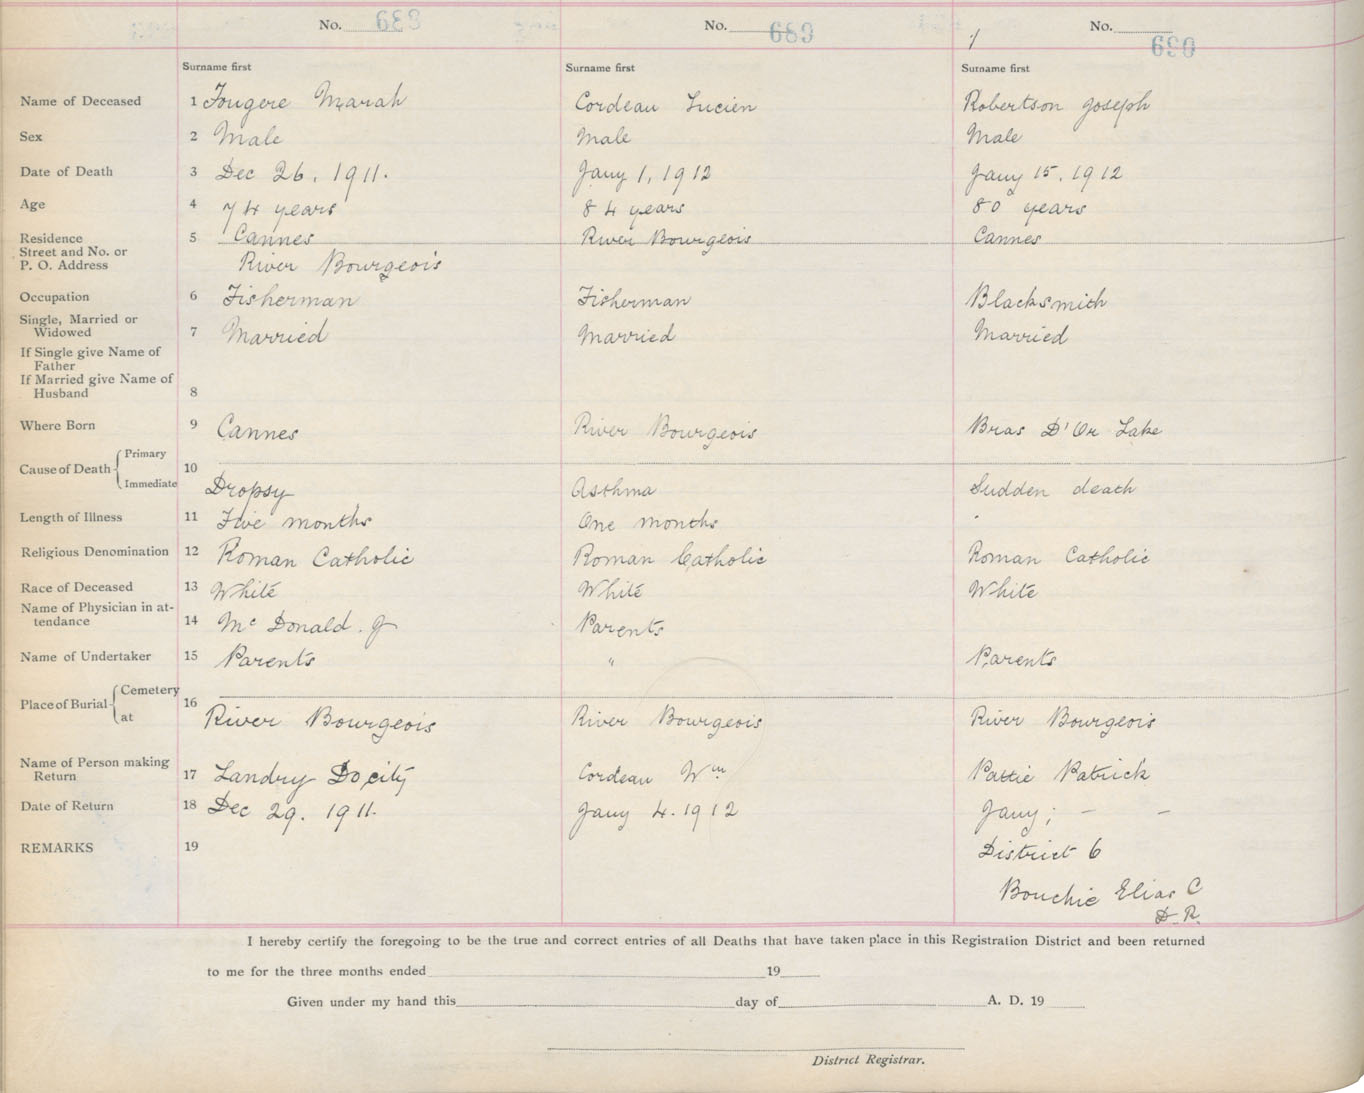 No. No. No.
Surname first Surname first Surname first
Name of Deceased 1 Fougere Marah Cordeau Lucien Robertson Joseph
Sex 2 Male Male Male
Date of Death 3 Dec 26, 1911. Jany 1, 1912 Jany 15, 1912
Age 4 74 years 84 years 80 years
Residence 5 Cannes River Bourgeois Cannes
Street and No. or
P. O. Address River Bourgeois
Occupation 6 Fisherman Fisherman Blacksmith
Single, Married or
Widowed 7 Married Married Married
If Single give Name of
Father
If Married give Name of
Husband 8
Where Born 9 Cannes River Bourgeois Bras D'Or Lake
Primary
Cause of Death 10
Immediate Dropsy Asthma Sudden death
Length of Illness 11 Five months One months
Religious Denomination 12 Roman Catholic Roman Catholic Roman Catholic
Race of Deceased 13 White White White
Name of Physician in at-
tendance 14 Mc Donald. J Parents
Name of Undertaker 15 Parents " Parents
Cemetery
Place of Burial 16
at River Bourgeois River Bourgeois River Bourgeois
Name of Person making
Return 17 Landry Docity Cordeau Wm Pattie Patrick
Date of Return 18 Dec 29. 1911. Jany 4. 1912 Jany; – –
REMARKS 19 District 6
Bouchie Elias C
D. R.
I hereby certify the foregoing to be the true and correct entries of all Deaths that have taken place in this Registration District and been returned
to me for the three months ended 19
Given under my hand this day of A. D. 19
District Registrar.